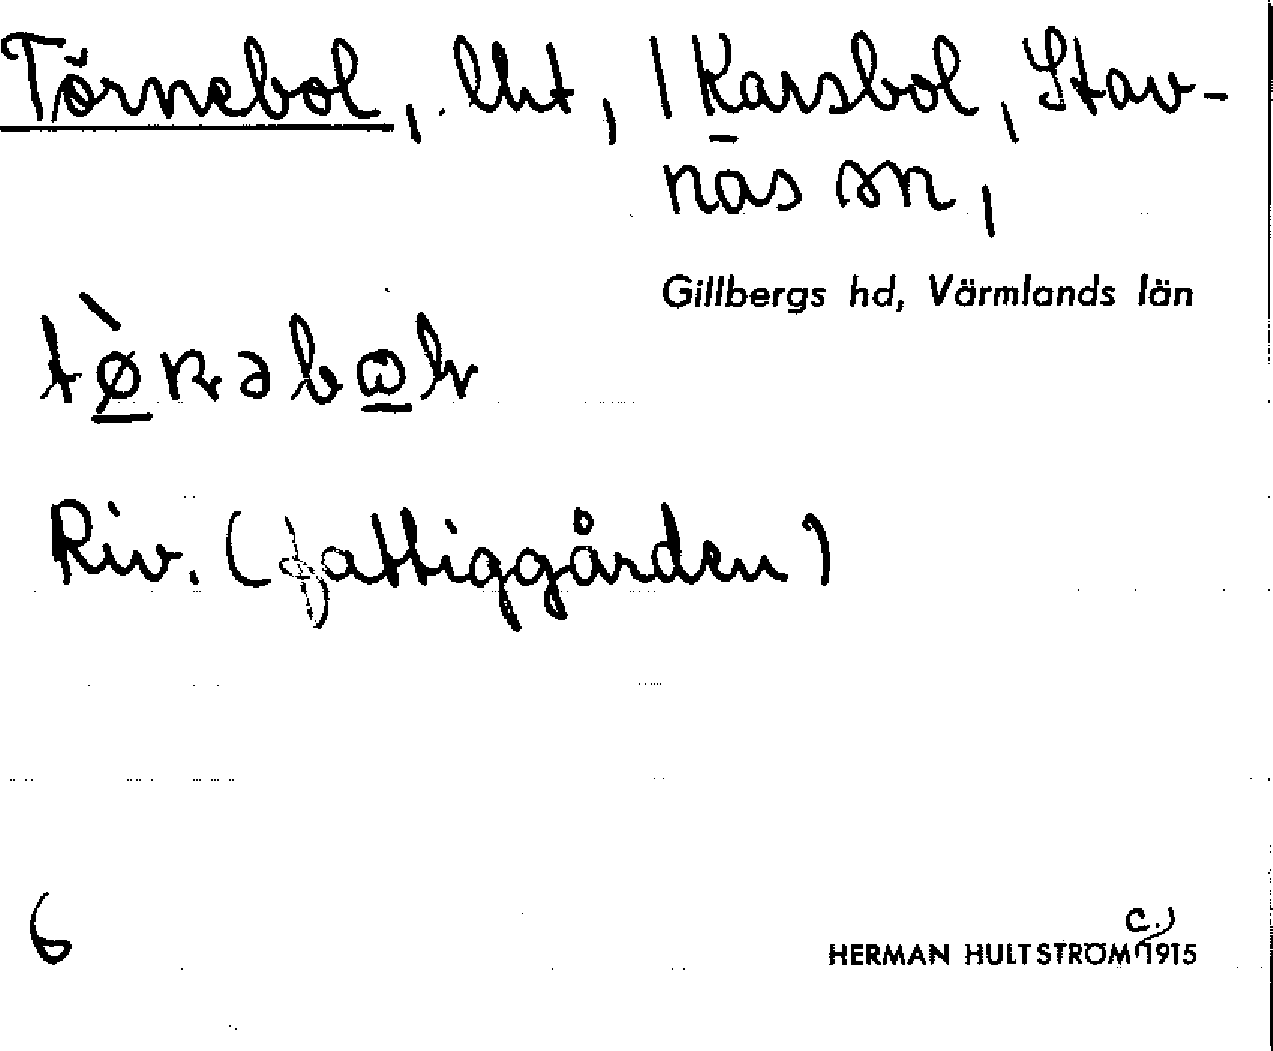 Törnebol, lht, / Karsbol, Stav-
näs sn,
Gillbergs hd, Värmlands län
Riv. (fattiggården)
6
c.)
HERMAN HULTSTRÖM 1915